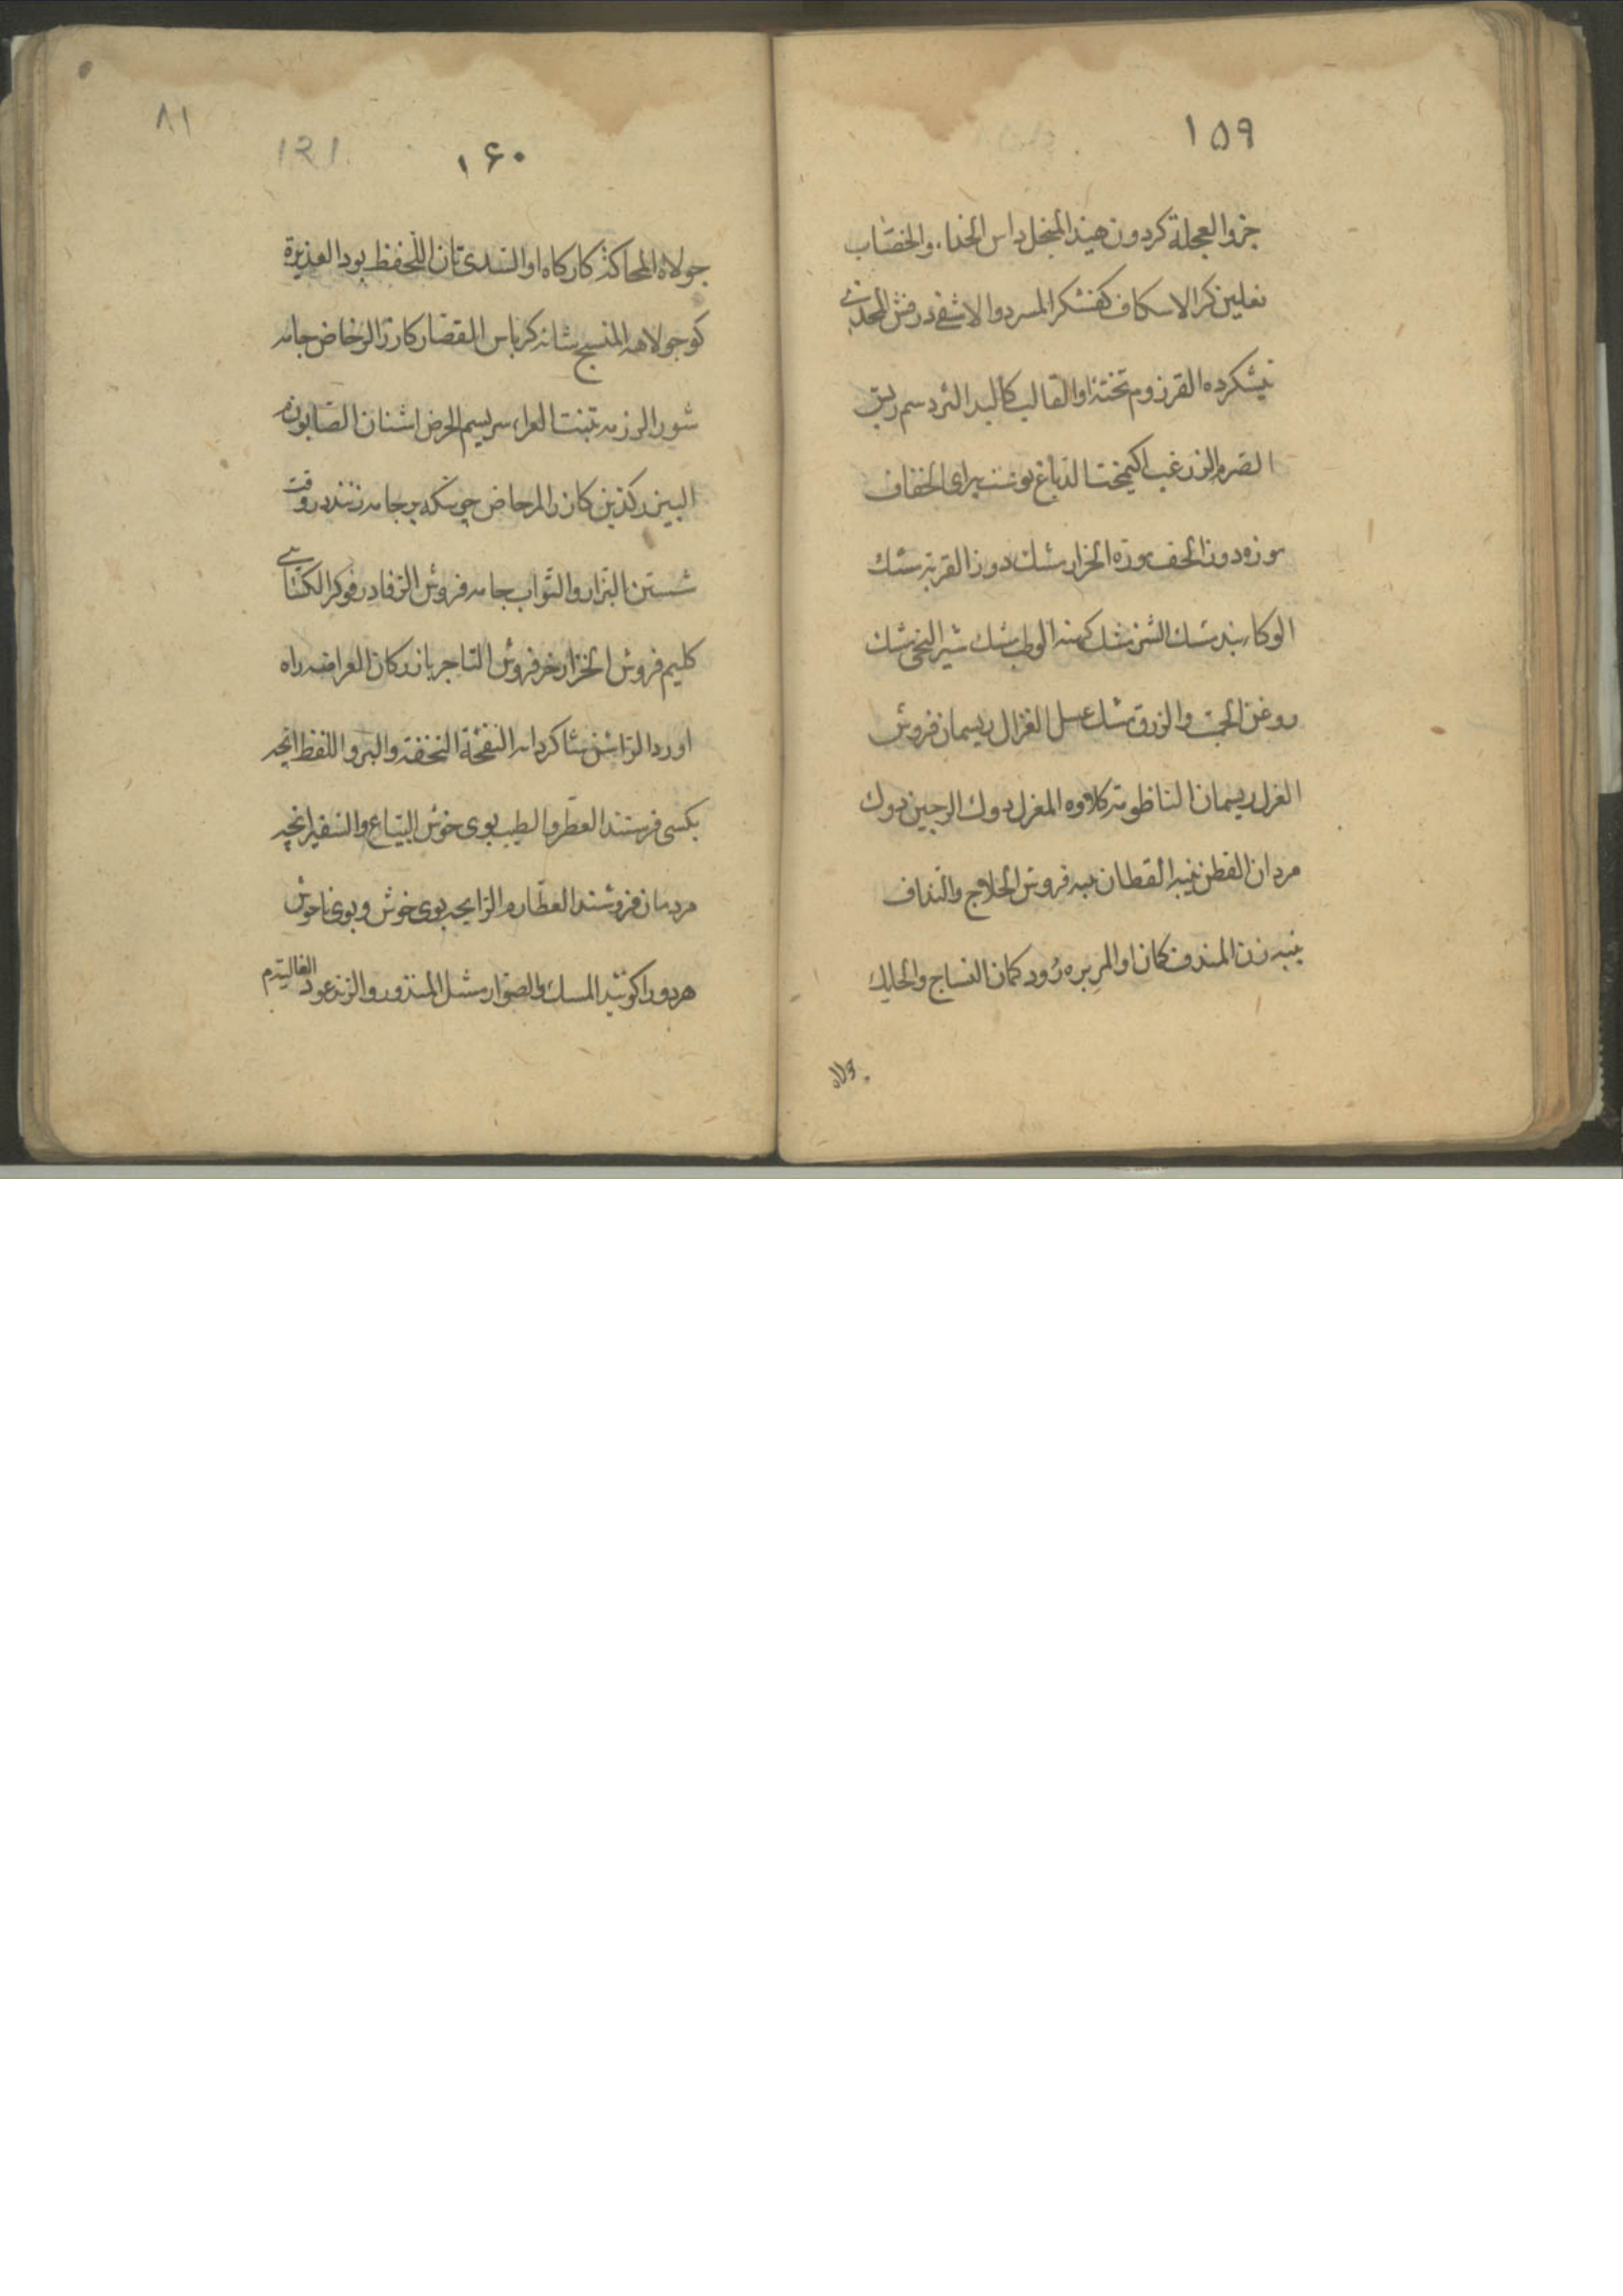 ۱۵۹
خر و العجلة کردون هیذ المنجل داس الحذاء و الخصّاب
نعلین کر الاسکاف کفشکر المسرد و الاشفی درفش المحذی
نیشکرده القرزوم تختۀ او القالب کالبد السرد سم ریق
الصرم الزرغب کیمخت الدباغ پوست پیرای الخفاف
موزه دوز الخف موزه الخراز مشک دوز القربة مشک
الوکاء بند مشک الشن مشک کهنه الوطب مشک شیر النحی مشک
روغن الحمیت و الزق مشک عسل الغزال ریسمان فروش
الغزل ریسمان الناظومة کلاوه المغزل دوک الرجین دوک
مردان القطن پنبه القطان پنبه فروش الحلاج و النداف
پنبه زن المندف کمان او المربره رود کمان النساج و الحایک
جولاه
۸۱
۱۲۱
۱۶۰
جولاه المحاکة کارکاه او السدی تان اللحفظ پود العذیرة
کو جولاهه المنسج شانه کرباس القصار کازر الرخاض جامه
شور الرزمه تبنت العراء سریسم الحرض اشنان الصابون م
البیزر کذین کازر المرحاض چوبکه بر جامه زنند در وقت
شستن البزاز و الثواب جامه فروش الرفاء رفوکر الکسائی
کلیم فروش الخزاز خز فروش التاجر بازرکان العراضه راه
اورد الراشن شاکردانه النفحة التحفة و البر و اللفظ انچه
بکسی فرستند العطر و الطیب بوی خوش البیاع و السفیر انچه
مردمان فروشند العطار م الرایحه بوی خوش و بوی ناخوش
هر دو را کویند المسک و الصوار مشک المندور و الزند عود الغالیة م